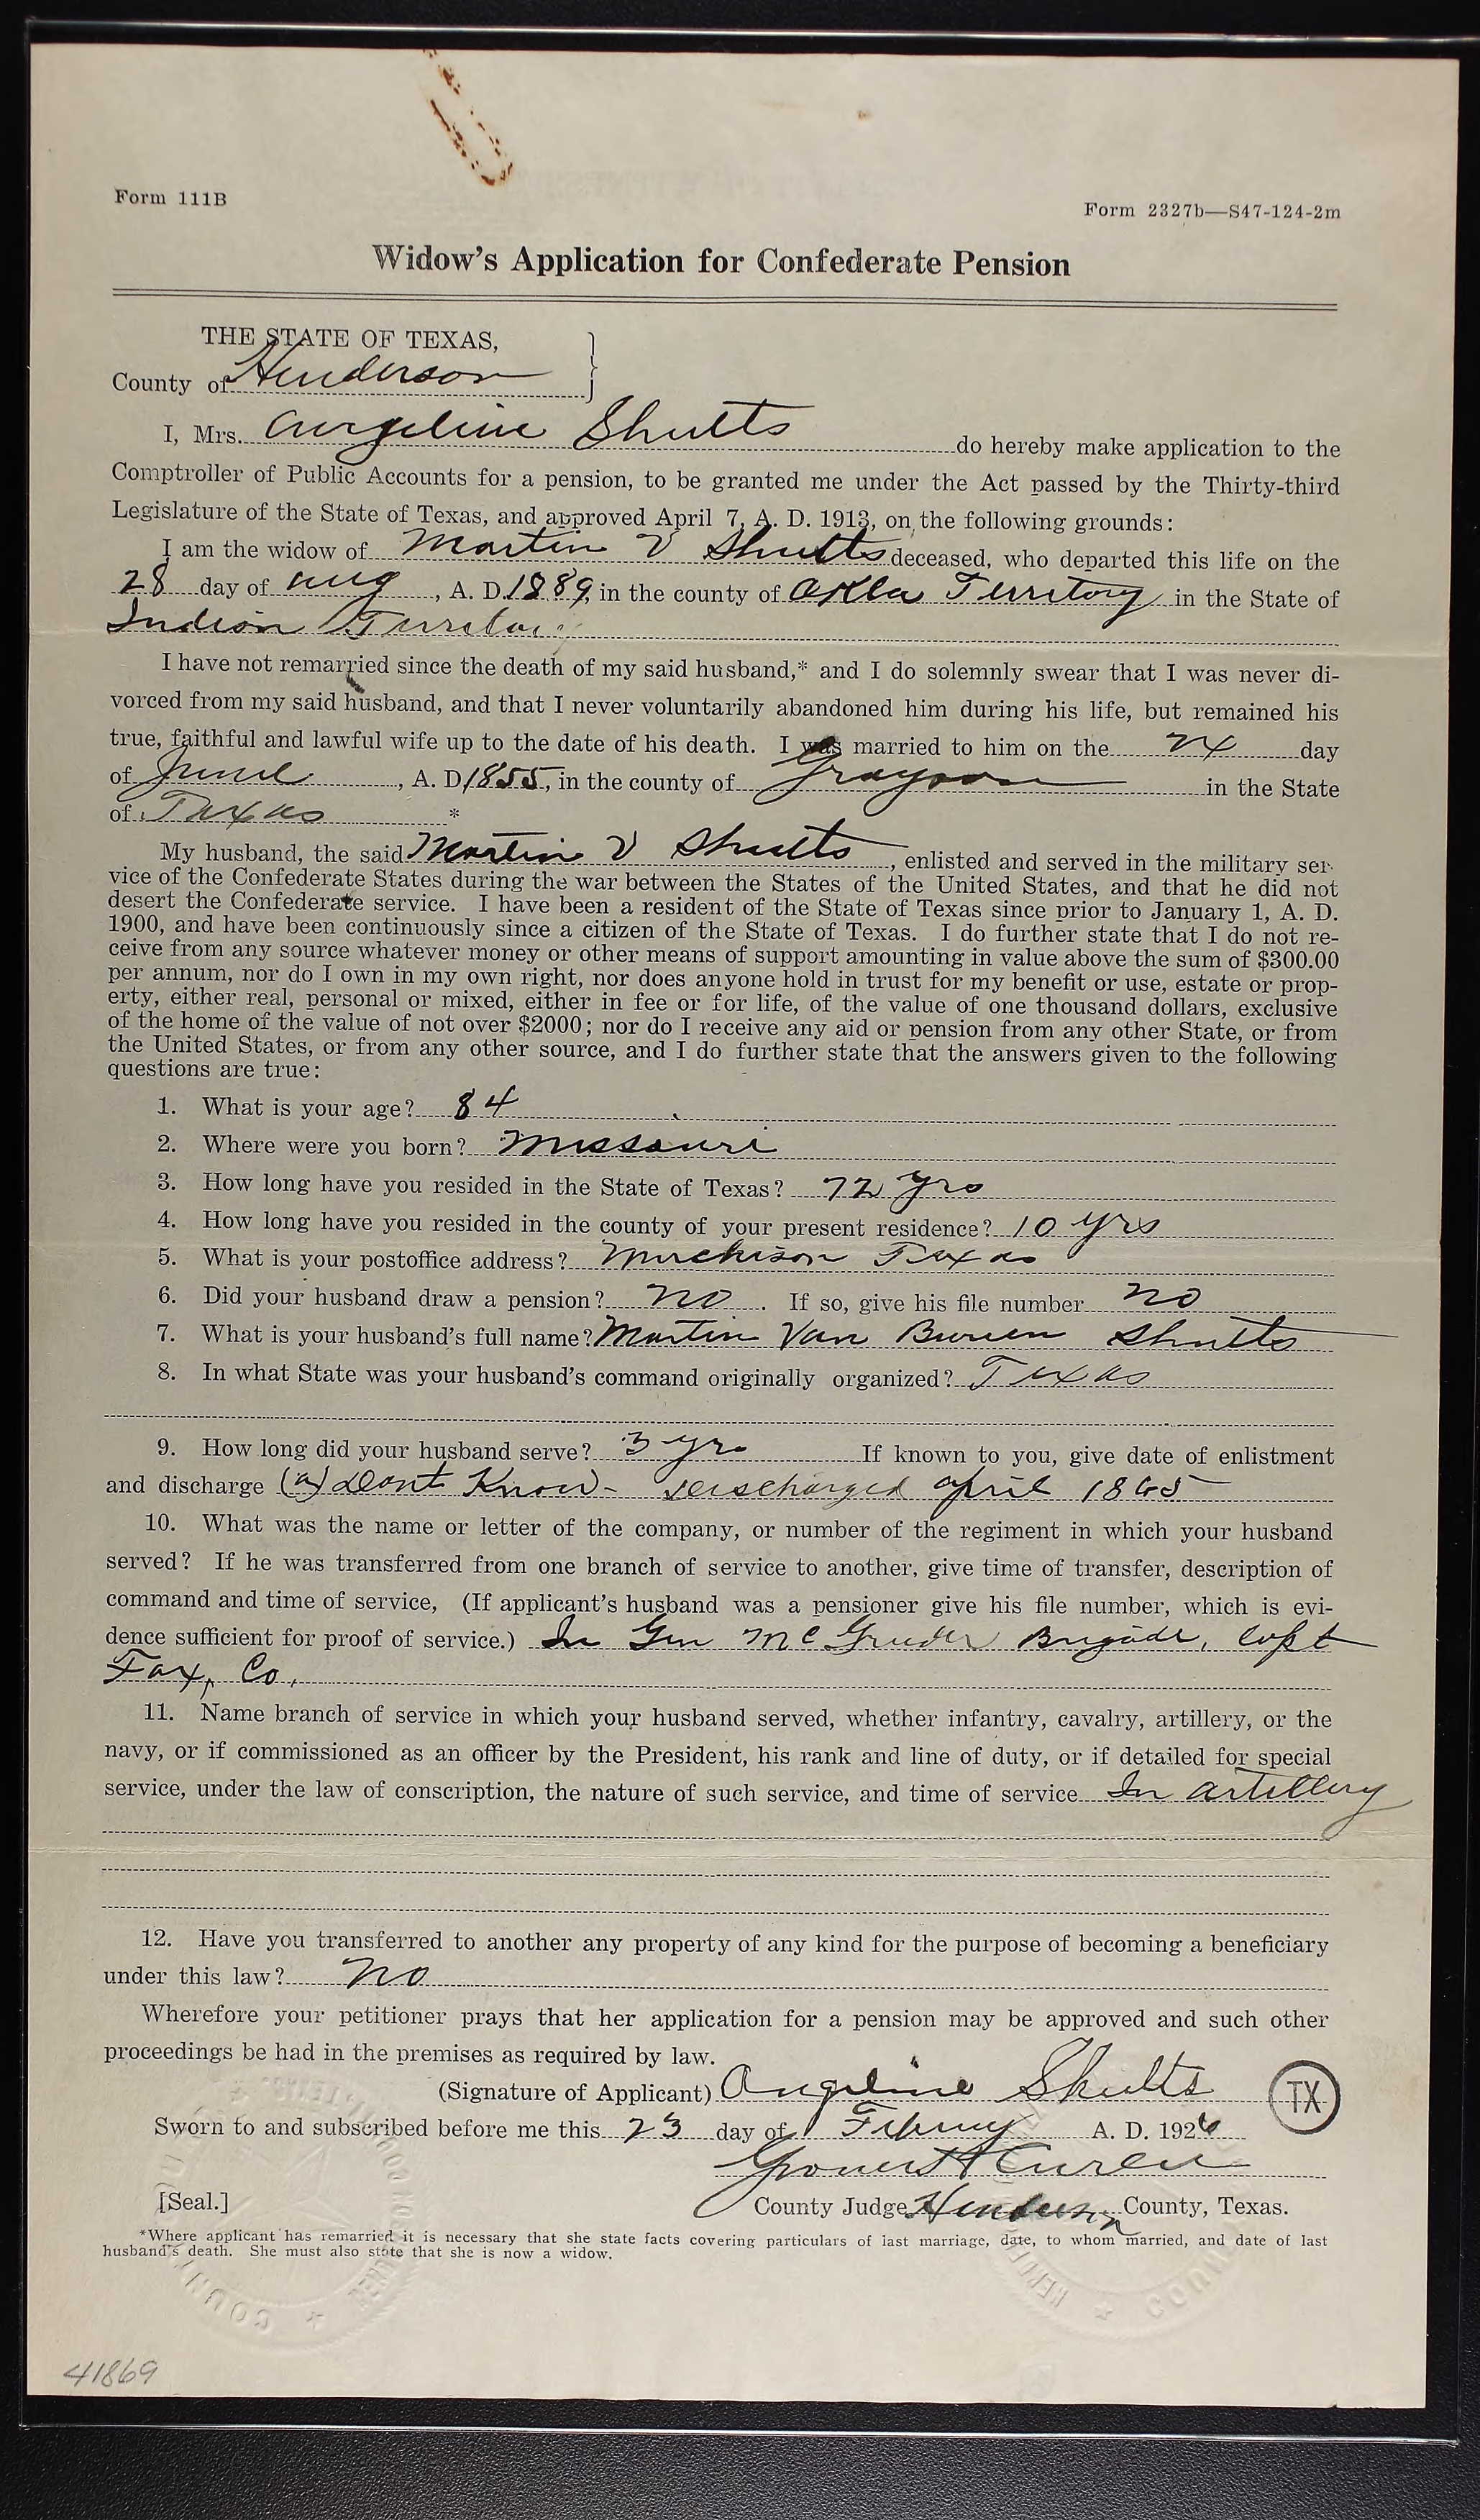 Form 111B
Form 2327b—S47-124-2m
Widow's Application for Confederate Pension
THE STATE OF TEXAS,
County of Henderson
I, Mrs. Angeline Shults do hereby make application to the
Comptroller of Public Accounts for a pension, to be granted me under the Act passed by the Thirty-third
Legislature of the State of Texas, and approved April 7, A. D. 1913, on the following grounds:
I am the widow of Martin V Shults deceased, who departed this life on the
28 day of Aug, A. D. 1889, in the county of Okla Territory in the State of
Indian Territory
I have not remarried since the death of my said husband,* and I do solemnly swear that I was never di-
vorced from my said husband, and that I never voluntarily abandoned him during his life, but remained his
true, faithful and lawful wife up to the date of his death. I was married to him on the 24 day
of June, A. D. 1855, in the county of Grayson in the State
of Texas *
My husband, the said Martin V Shults, enlisted and served in the military ser-
vice of the Confederate States during the war between the States of the United States, and that he did not
desert the Confederate service. I have been a resident of the State of Texas since prior to January 1, A. D.
1900, and have been continuously since a citizen of the State of Texas. I do further state that I do not re-
ceive from any source whatever money or other means of support amounting in value above the sum of $300.00
per annum, nor do I own in my own right, nor does anyone hold in trust for my benefit or use, estate or prop-
erty, either real, personal or mixed, either in fee or for life, of the value of one thousand dollars, exclusive
of the home of the value of not over $2000; nor do I receive any aid or pension from any other State, or from
the United States, or from any other source, and I do further state that the answers given to the following
questions are true:
1. What is your age? 84
2. Where were you born? Missouri
3. How long have you resided in the State of Texas? 72 yrs
4. How long have you resided in the county of your present residence? 10 yrs
5. What is your postoffice address? Murchison Texas
6. Did your husband draw a pension? no. If so, give his file number no
7. What is your husband's full name? Martin Van Buren Shults
8. In what State was your husband's command originally organized? Texas
9. How long did your husband serve? 3 yrs If known to you, give date of enlistment
and discharge (a) Dont Know - discharged april 1865
10. What was the name or letter of the company, or number of the regiment in which your husband
served? If he was transferred from one branch of service to another, give time of transfer, description of
command and time of service, (If applicant's husband was a pensioner give his file number, which is evi-
dence sufficient for proof of service.) In Gen McGruder Brigade, Capt
Fox, Co.
11. Name branch of service in which your husband served, whether infantry, cavalry, artillery, or the
navy, or if commissioned as an officer by the President, his rank and line of duty, or if detailed for special
service, under the law of conscription, the nature of such service, and time of service In artillery
12. Have you transferred to another any property of any kind for the purpose of becoming a beneficiary
under this law? no
Wherefore your petitioner prays that her application for a pension may be approved and such other
proceedings be had in the premises as required by law.
(Signature of Applicant) Angeline Shults
TX
Sworn to and subscribed before me this 23 day of Februy A. D. 1926
[Seal.] County Judge Henderson County, Texas.
*Where applicant has remarried it is necessary that she state facts covering particulars of last marriage, date, to whom married, and date of last
husband's death. She must also state that she is now a widow.
41869